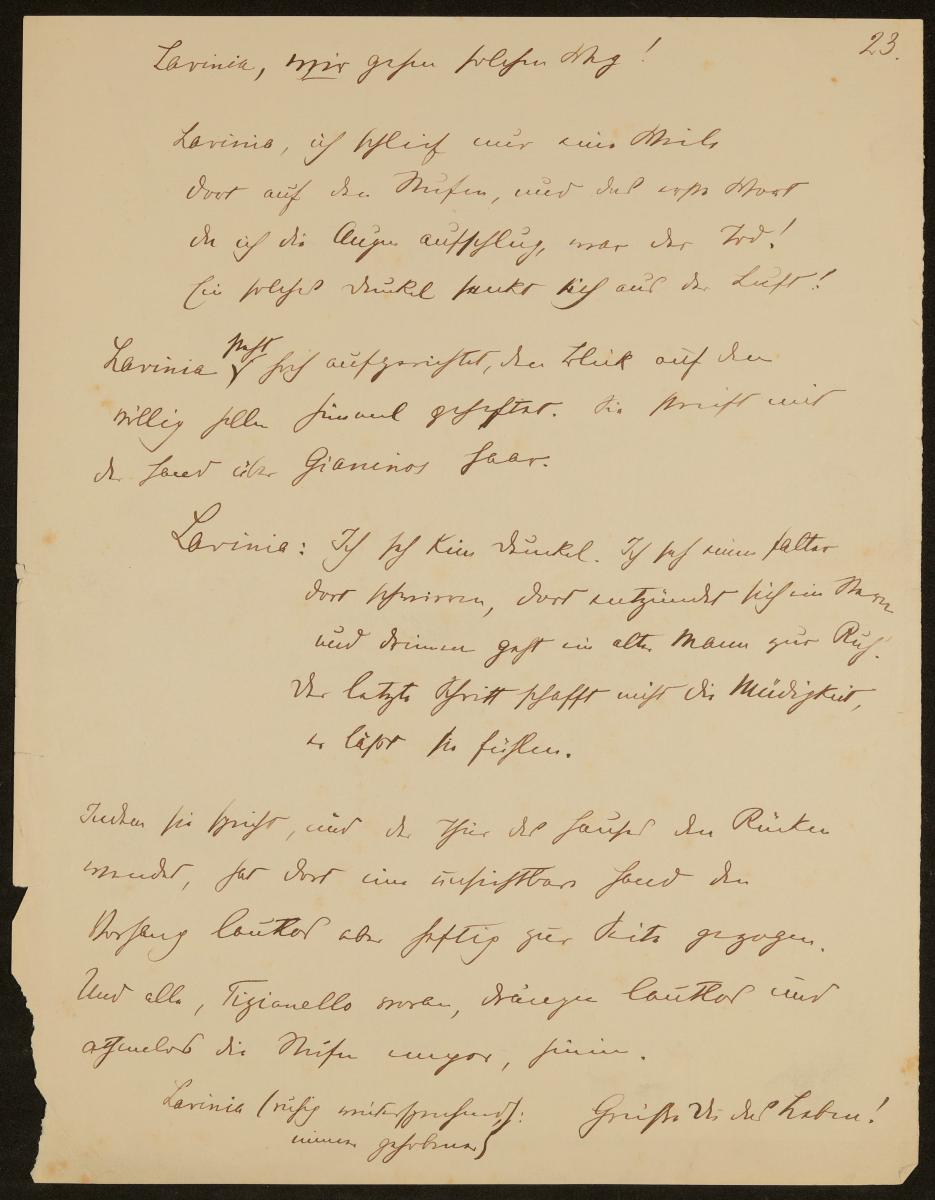 23.
Lavinia, wir gehen solchen Weg!
Lavinia, ich schlief nur eine Weile
dort auf den Stufen, und das erste Wort
da ich die Augen aufschlug, war der Tod!
Ein solches Dunkel senkt sich aus der Luft!
Lavinia steht hoch aufgerichtet, den Blick auf den
völlig hellen Himmel geheftet. Sie streift mit
der Hand über Gianinos Haar.
Lavinia: Ich seh kein Dunkel. Ich seh einen Falter
dort schwirren, dort entzündet sich ein Stern
und drinnen geht ein alter Mann zur Ruh.
Der letzte Schritt schafft nicht die Müdigkeit,
er läßt sie fühlen.
Indem sie spricht, und der Thür des Hauses den Rücken
wendet, hat dort eine unsichtbare Hand den
Vorhang lautlos aber heftig zur Seite gezogen.
Und alle, Tizianello voran, drängen lautlos und
athemlos die Stufen empor, hinein.
Lavinia (ruhig weitersprechend,):
immer gehobener)
Grüße Du das Leben!